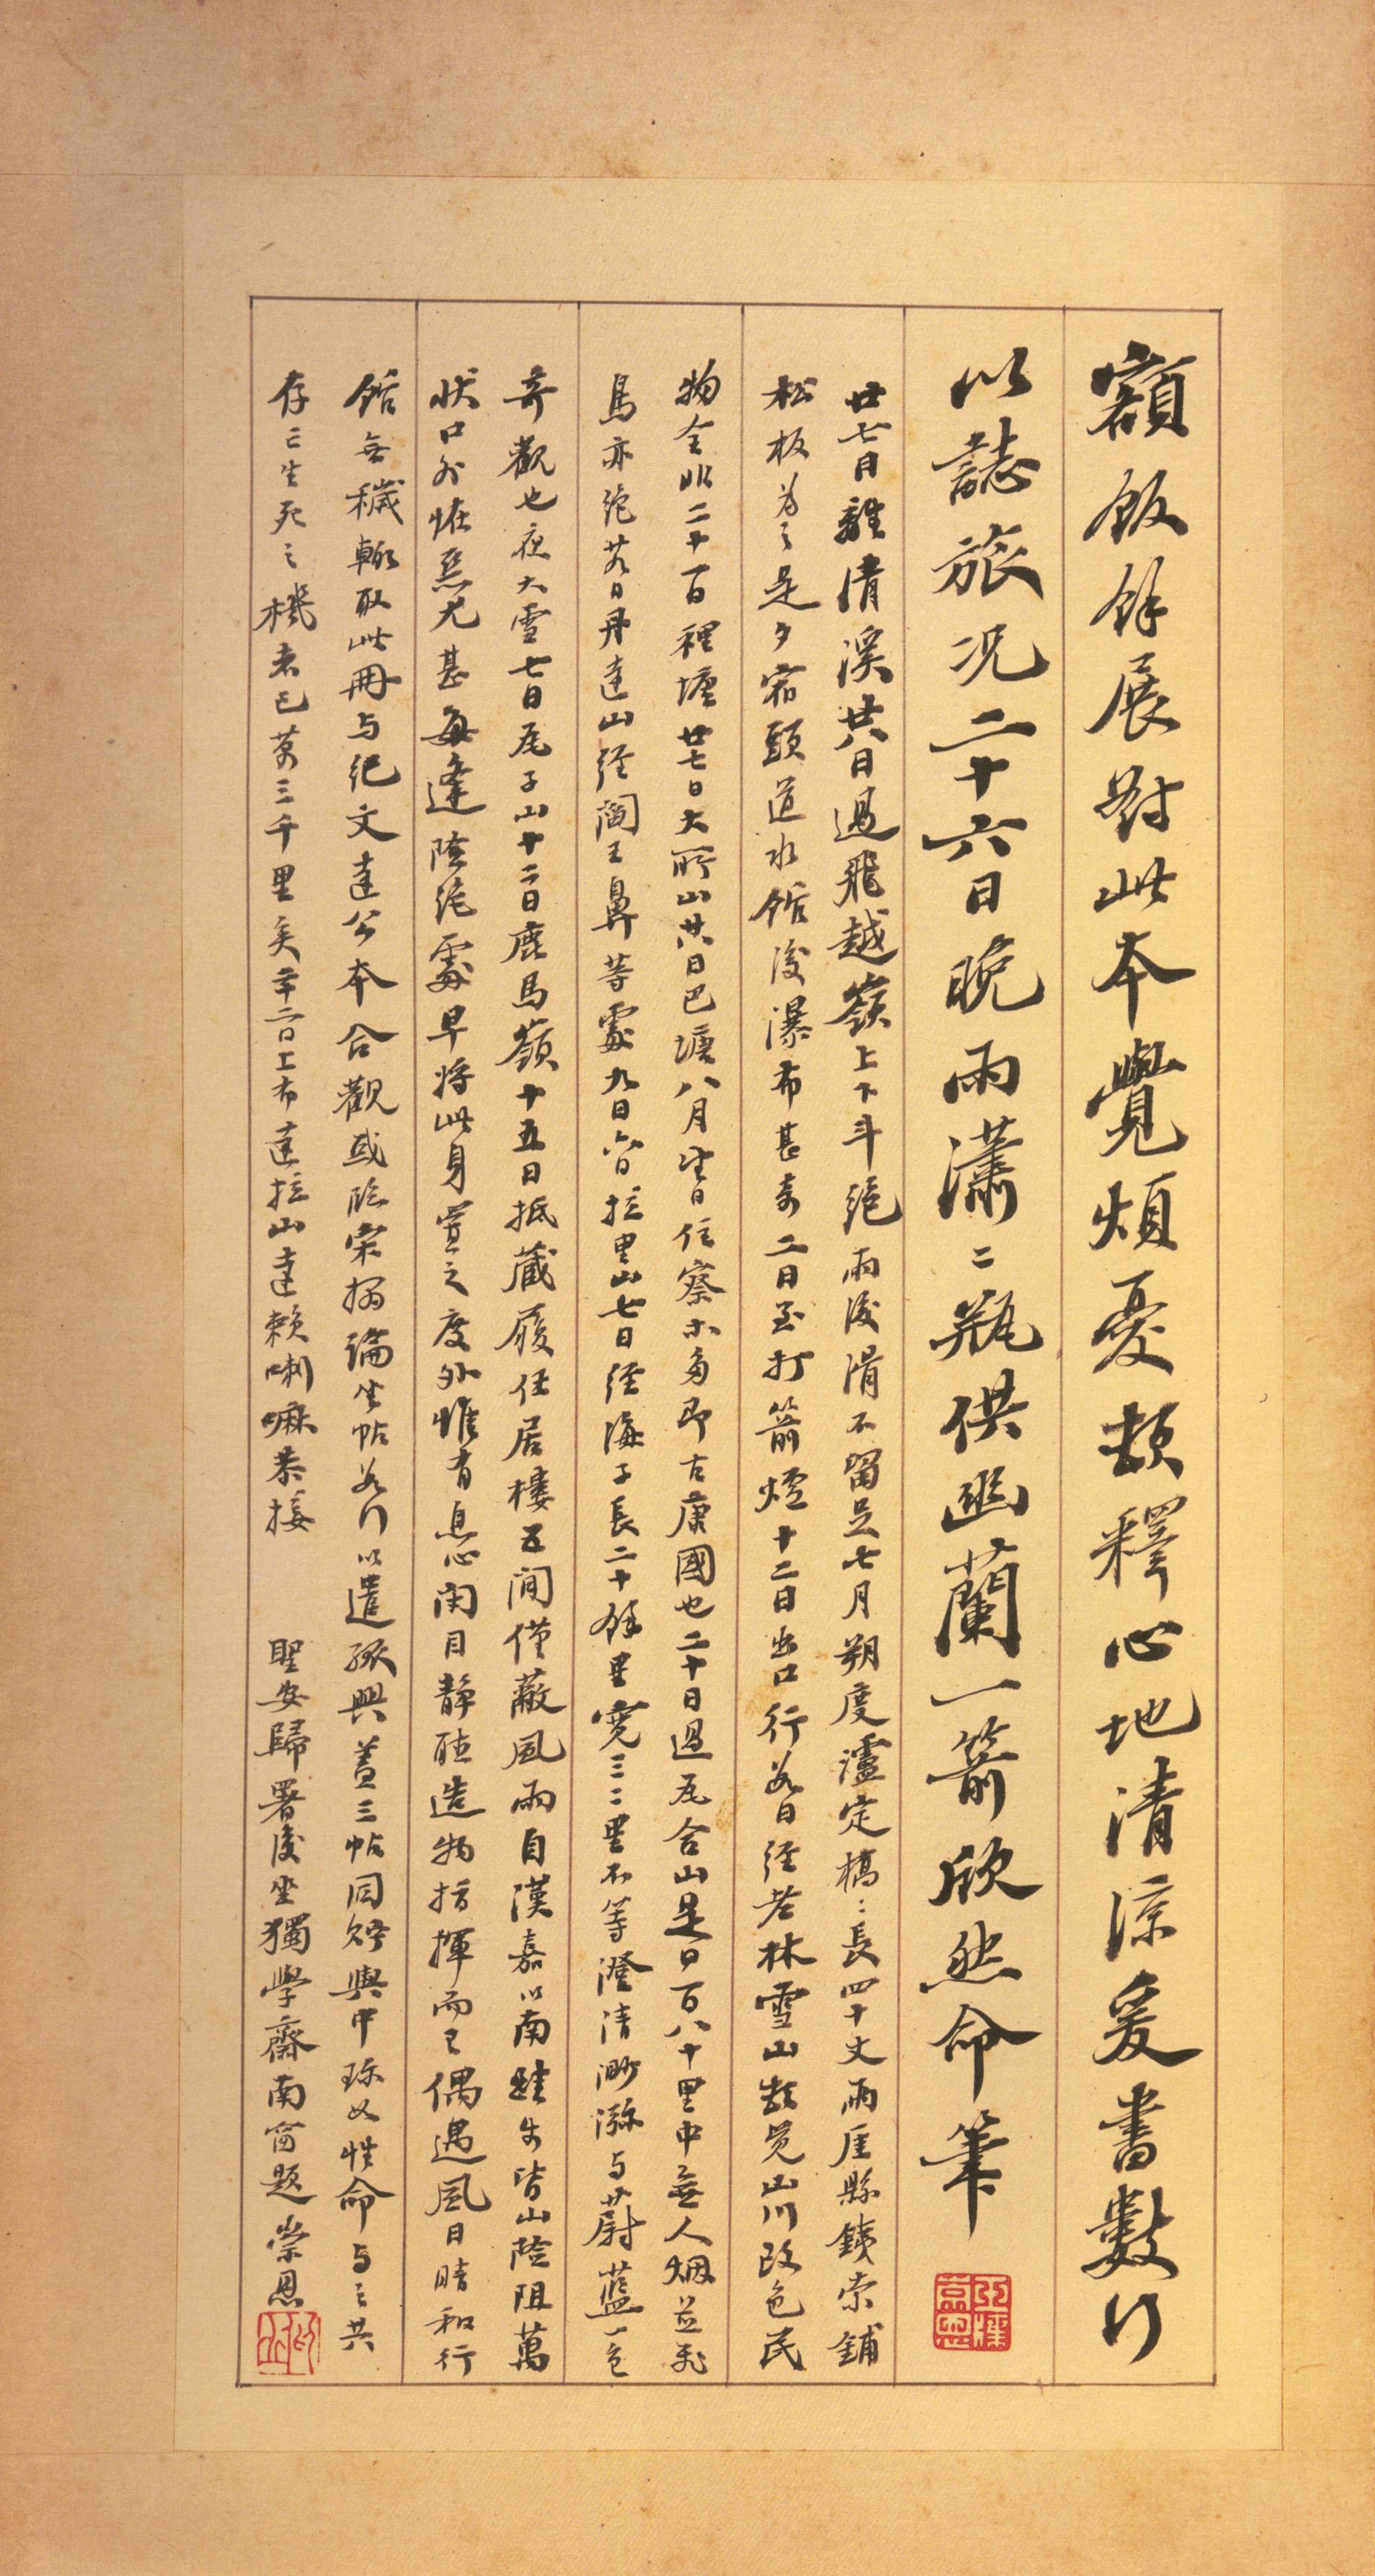 額飯餘展對此本覺煩憂頓釋心地清涼爰書數行
以誌旅況二十六日晚雨瀟二瓶供幽蘭一箭欣然命筆
廿七日離清溪廿八日過飛越嶺上下斗絕雨後滑不留足七月朔度瀘定橋：長四十丈兩厓縣鐵索鋪
松板為之是夕宿頭道水館後瀑布甚奇二日至打箭爐十二日出口行數日經老林雪山頓覺山川改色民
物全非二十一日裡塘廿七日大所山廿八日巴塘八月 日住察木多即古康國也二十日過瓦合山是日百八十里中無人烟並飛
鳥亦絕 日丹達山經閻王鼻等處九日六日拉里山七日經海子長二十餘里寬三二里不等澄清渺瀰与蔚藍一色
奇觀也夜大雪七日瓦子山十二日鹿馬嶺十五日抵藏履任居樓五間僅蔽風雨自漢嘉以南 步皆山險阻萬
狀口外怪惡尤甚每逢險絕處早將此身置之度外惟有息心閉目靜聽造物指揮而已偶遇風日晴和行
館無穢輒取此冊与紀文達公本合觀或臨宋搨 坐帖數行以遣旅興蓋三帖同貯輿中珍如性命与之共
存亡生死之機者已萬三千里矣 二日上布達拉山達賴喇嘛恭接 聖安歸署後坐獨學齋南窗題 崇恩